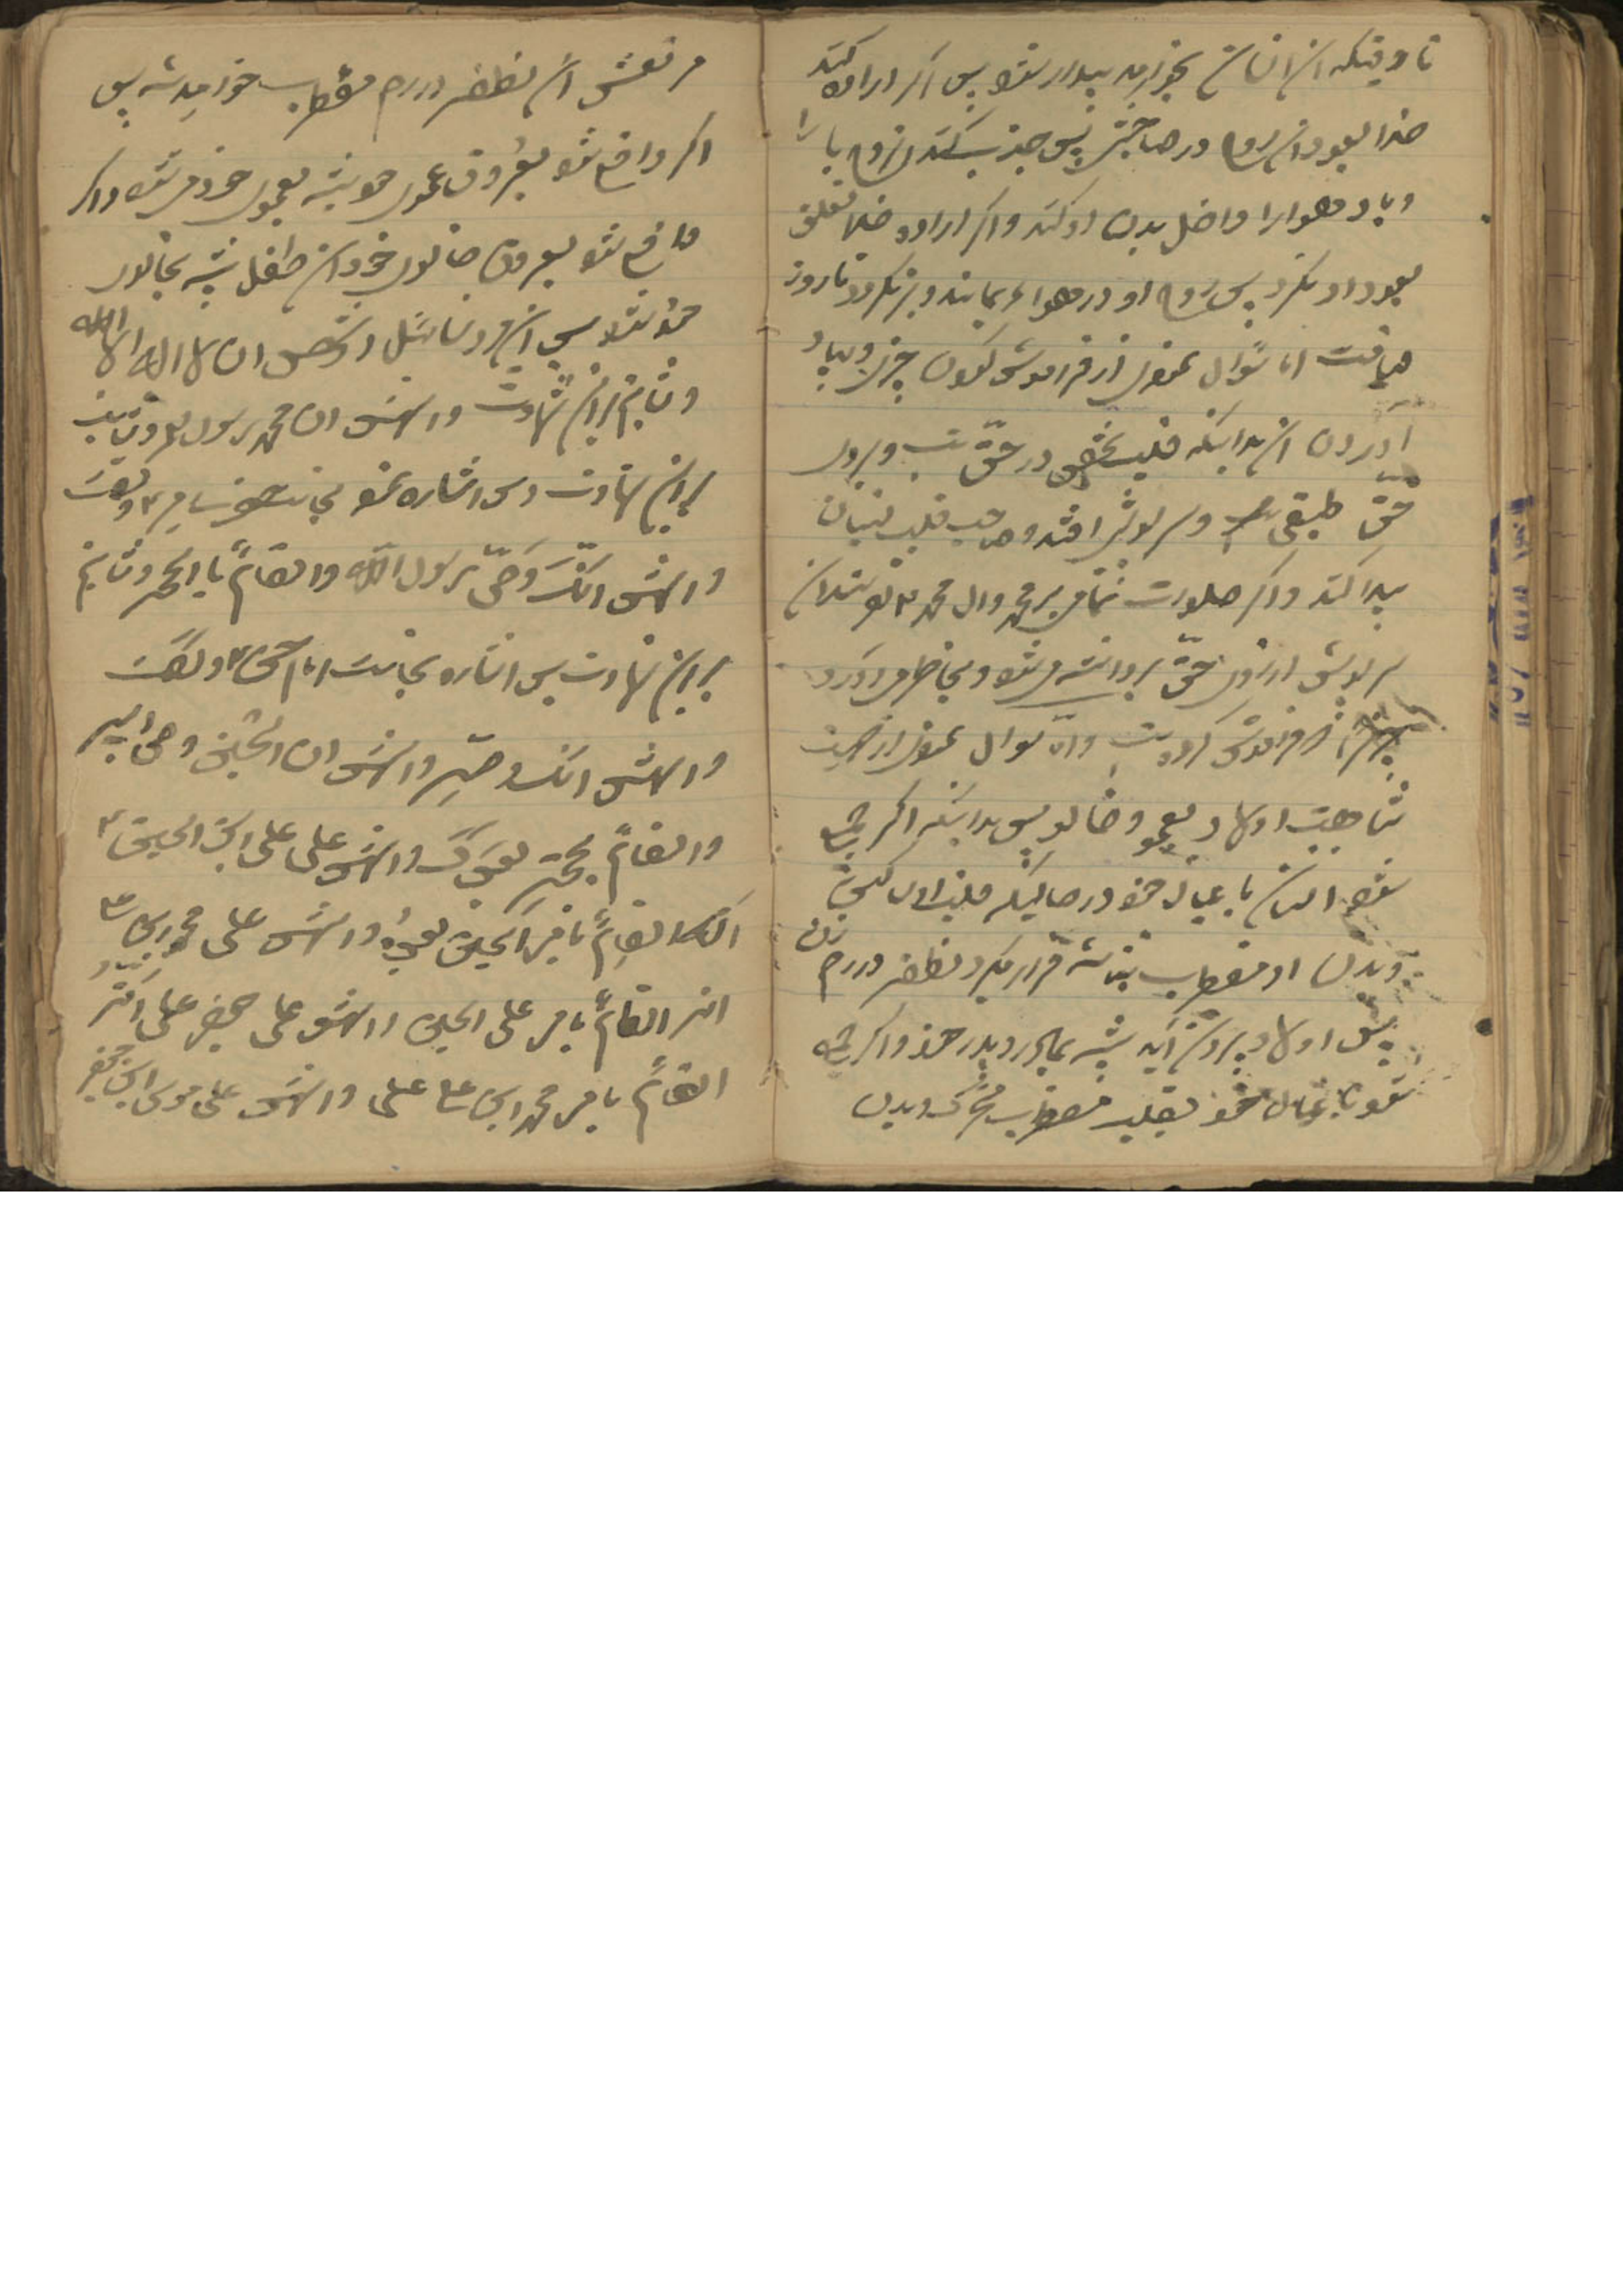 تا وقتیکه آن انسان بخوابد بیدار شود پس اگر اراده کند
خدا بعود آن روح در صاحبش پس جذب کند آن روح باد را
و باد هوا را داخل بدن او کند و اگر اراده خدا تعلق
بعود او نگیرد پس روح او در هوا بماند و برنگردد تا روز
قیامت اما سؤال نمودی از فراموش کردن چیزی و بیاد
آوردن آن بدانکه قلب شخص در حقه است و بروی
حقه طبقی است و سرپوش افتد و صاحب قلب نسیان
پیدا کند و اگر صلوات تمامی بر محمد و آل محمد بفرستد آن
سرپوش از روی حقه برداشته میشود و بخاطر می آورد
چیزی را که فراموش کرده است و اما سؤال نمودی از جهت
شباهت اولاد بعمو و خالو پس بدانکه اگر جمع
شود انسان با عیال خود در حالیکه قلب او ساکن
و بدن او مضطرب نباشد قرار میگیرد نطفه در رحم زن
پس اولاد بیرون آید شبیه بمادر و پدر خود و اگر جمع
شود با عیال خود بقلب مضطرب متحرک و بدن
مرتعش آن نطفه در رحم مضطرب خواهد شد پس
اگر واقع شود بعروق عموی خود شبیه بعموی خود میشود و اگر
واقع شود بعروق خالوی خود آن طفل شبیه بخالوی
خود شود پس آن مرد سائل اشهد ان لا اله الا الله
و ثابتم بر این شهادت و اشهد ان محمد رسول الله و ثابتم
بر این شهادت پس اشاره نمود بجانب حضرت امیر و گفت
و اشهد انک وصی رسول الله و القائم بامره و ثابتم
بر این شهادت پس اشاره بجانب امام حسن و گفت
و اشهد انک وصیه و اشهد ان الحسین وصی ابیه
و القائم بحجته بعدک و اشهد علی علی ابن الحسین
انه القائم بامر الحسین بعده و اشهد علی محمد بن علی
انه القائم بامر علی الحسین و اشهد علی جعفر علی انه
القائم بامر محمد ابن علی و اشهد علی موسی ابن جعفر